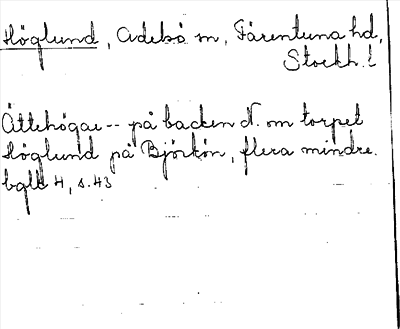 Höglund, Adelsö sn, Färentuna hd,
Stockh. l
Ättehögar -- på backen N. om torpet
Höglund på Björkön, flera mindre.
4, s. 43